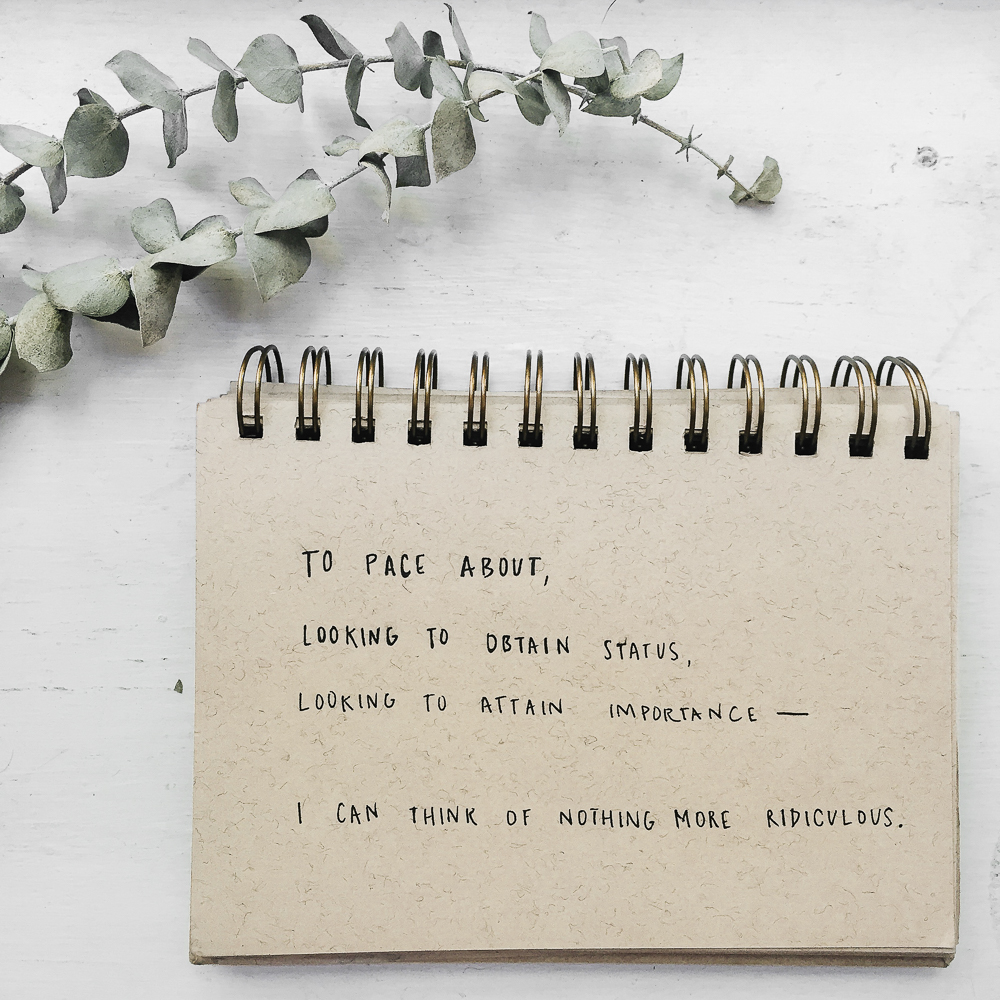 TO PACE ABOUT,
LOOKING TO OBTAIN STATUS,
LOOKING TO ATTAIN IMPORTANCE —
I CAN THINK OF NOTHING MORE RIDICULOUS.